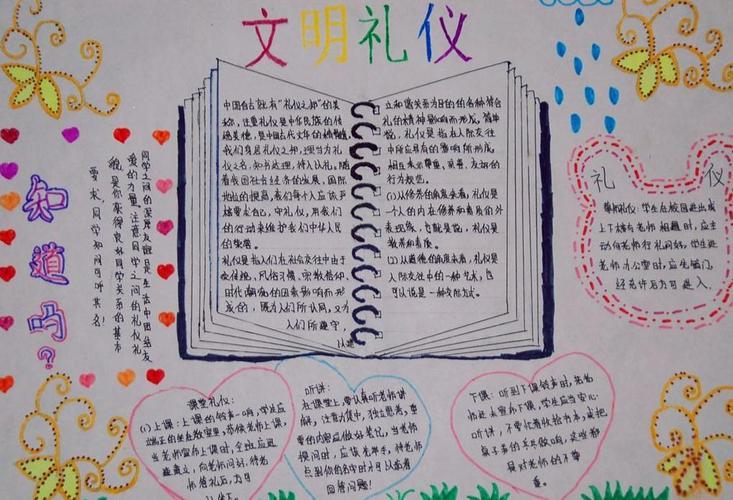 文明礼仪
中国自古就有“礼仪之邦”的美
称,注重礼仪是中华民族的传
统美德,是中国古代文化的精髓
我们身居礼仪之邦,理当为礼
仪之名,知书达理,待人以礼。随
着我国社会经济的发展,国际
地位的提高,我们每个人应该严
格要求自己,守礼仪,用我们
的行动来维护我们中华人民
的荣誉。
礼仪是指人们在社会交往中由于
受传统、风俗习惯、宗教信仰、
时代潮流的因素影响而形
成的,既为人们所认同,又为
人们所遵守,
以建
立和谐关系为目的的各种符合
礼的精神影响而形成。简单
说,礼仪是指在人际交往
中所应具有的
相互表示尊重、亲善、友好的
行为规范。
(1)从修养的角度来看,礼仪是
一个人的内在修养和素质的外
表现,也就是说,礼仪是
教养和素质。
(2)从道德的角度来看,礼仪是
人际交往中的一种艺术,也
可以说是一种交际方式。
知道吗?
同学之间的深厚友谊是生活中团结友
爱的力量,注意同学之间的礼仪礼
貌,是你获得良好同学关系的基本
要求,同学知问可听其名!
礼仪
尊师礼仪:学生在校园进出或
上下楼与老师相遇时,应主
动向老师行礼问好。学生进
老师办公室时,应先敲门,
经允许后方可进入。
课堂礼仪:
(1)上课:上课的铃声一响,学生应
端正的坐在教室里,恭候老师上课,
当老师宣布上课时,全班应迅
速肃立,向老师问好,待老
师答礼后,方可
坐下。
听讲:
在课堂上,要认真听老师讲
解,注意力集中,独立思考,重
要的内容应做好笔记,当老师
提问时,应该先举手,待老师
点到你的名字时才可以站着
回答问题!
下课:听到下课铃声时,若老
师还未宣布下课,学生应当安心
听讲,不要忙着收拾书本,或把
桌子弄的乒乓作响,这些都
是对老师的不尊
重。